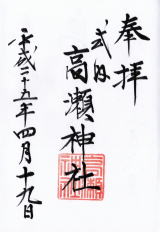 奉拝
式内
高瀬神社
平成二十五年四月十九日